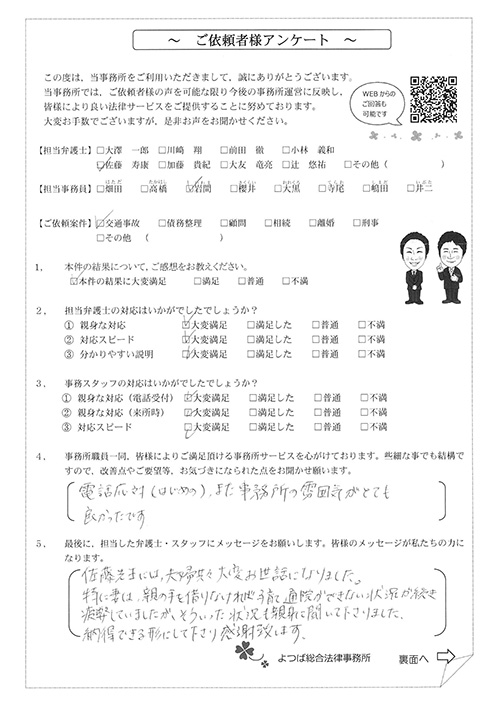 ～ ご依頼者様アンケート ～
この度は、当事務所をご利用いただきまして、誠にありがとうございます。
当事務所では、ご依頼者様の声を可能な限り今後の事務所運営に反映し、
皆様により良い法律サービスをご提供することに努めております。
大変お手数でございますが、是非お声をお聞かせください。
WEBからの
ご回答も
可能です
【担当弁護士】□大澤 一郎 □川﨑 翔 □前田 徹 □小林 義和
☑佐藤 寿康 □加藤 貴紀 □大友 竜亮 □辻 悠祐 □その他（ ）
【担当事務員】□畑田 □高橋 ☑岩間 □櫻井 □大黒 □寺尾 □嶋田 □井二
【ご依頼案件】☑交通事故 □債務整理 □顧問 □相続 □離婚 □刑事
□その他 （ ）
1． 本件の結果について、ご感想をお教えください。
☑本件の結果に大変満足 □満足 □普通 □不満
2． 担当弁護士の対応はいかがでしたでしょうか？
① 親身な対応 ☑大変満足 □満足した □普通 □不満
② 対応スピード ☑大変満足 □満足した □普通 □不満
③ 分かりやすい説明 ☑大変満足 □満足した □普通 □不満
3． 事務スタッフの対応はいかがでしたでしょうか？
① 親身な対応（電話受付） ☑大変満足 □満足した □普通 □不満
② 親身な対応（来所時） ☑大変満足 □満足した □普通 □不満
③ 対応スピード ☑大変満足 □満足した □普通 □不満
4． 事務所職員一同、皆様によりご満足頂ける事務所サービスを心がけております。些細な事でも結構で
すので、改善点やご要望等、お気づきになられた点をお聞かせ願います。
電話応対（はじめの）、また事務所の雰囲気がとても
良かったです
5． 最後に、担当した弁護士・スタッフにメッセージをお願いします。皆様のメッセージが私たちの力に
なります。
佐藤先生には、夫婦共々大変お世話になりました。
特に妻は、親の手を借りなければ子育て、通院ができない状況が続き
疲弊していましたが、そういった状況も親身に聞いて下さりました。
納得できる形にして下さり感謝致します。
よつば総合法律事務所
裏面へ